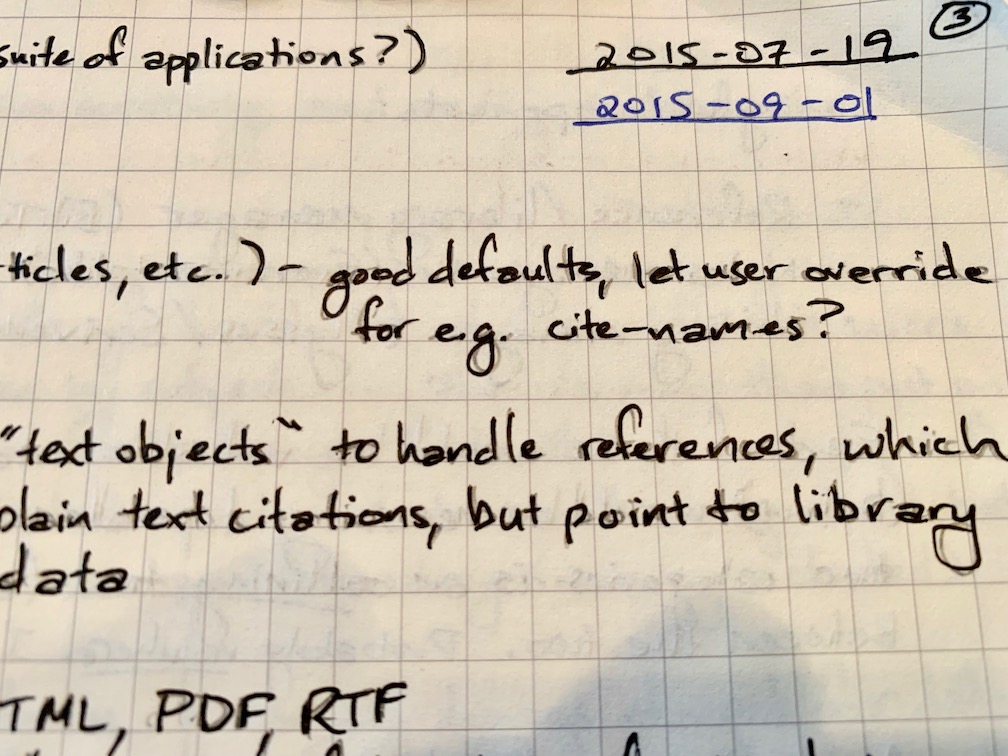 suite of applications?)
2015-07-19
3
2015-09-01
ticles, etc.) - good defaults, let user override
for e.g. cite-names?
"text objects" to handle references, which
plain text citations, but point to library
data
TML, PDF, RTF